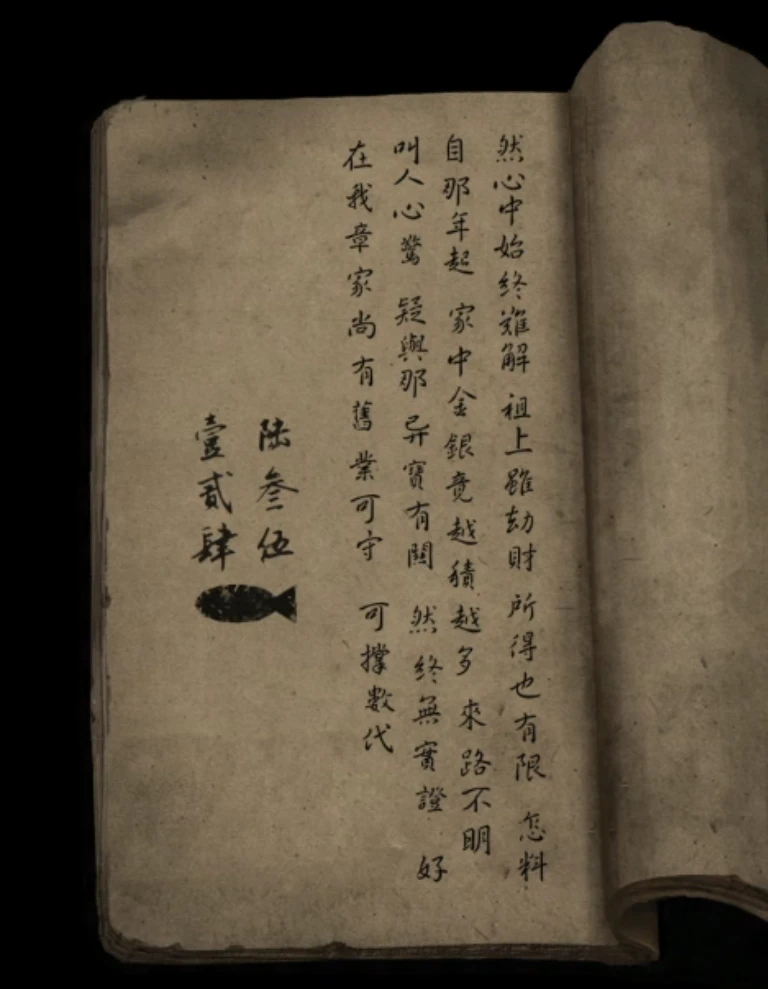 然心中始終難解 祖上雖劫財 所得也有限 怎料
自那年起 家中金銀竟越積越多 來路不明
叫人心驚 疑與那异寶有關 然終無實證 好
在我章家尚有舊業可守 可撐數代
陸叁伍
壹貳肆